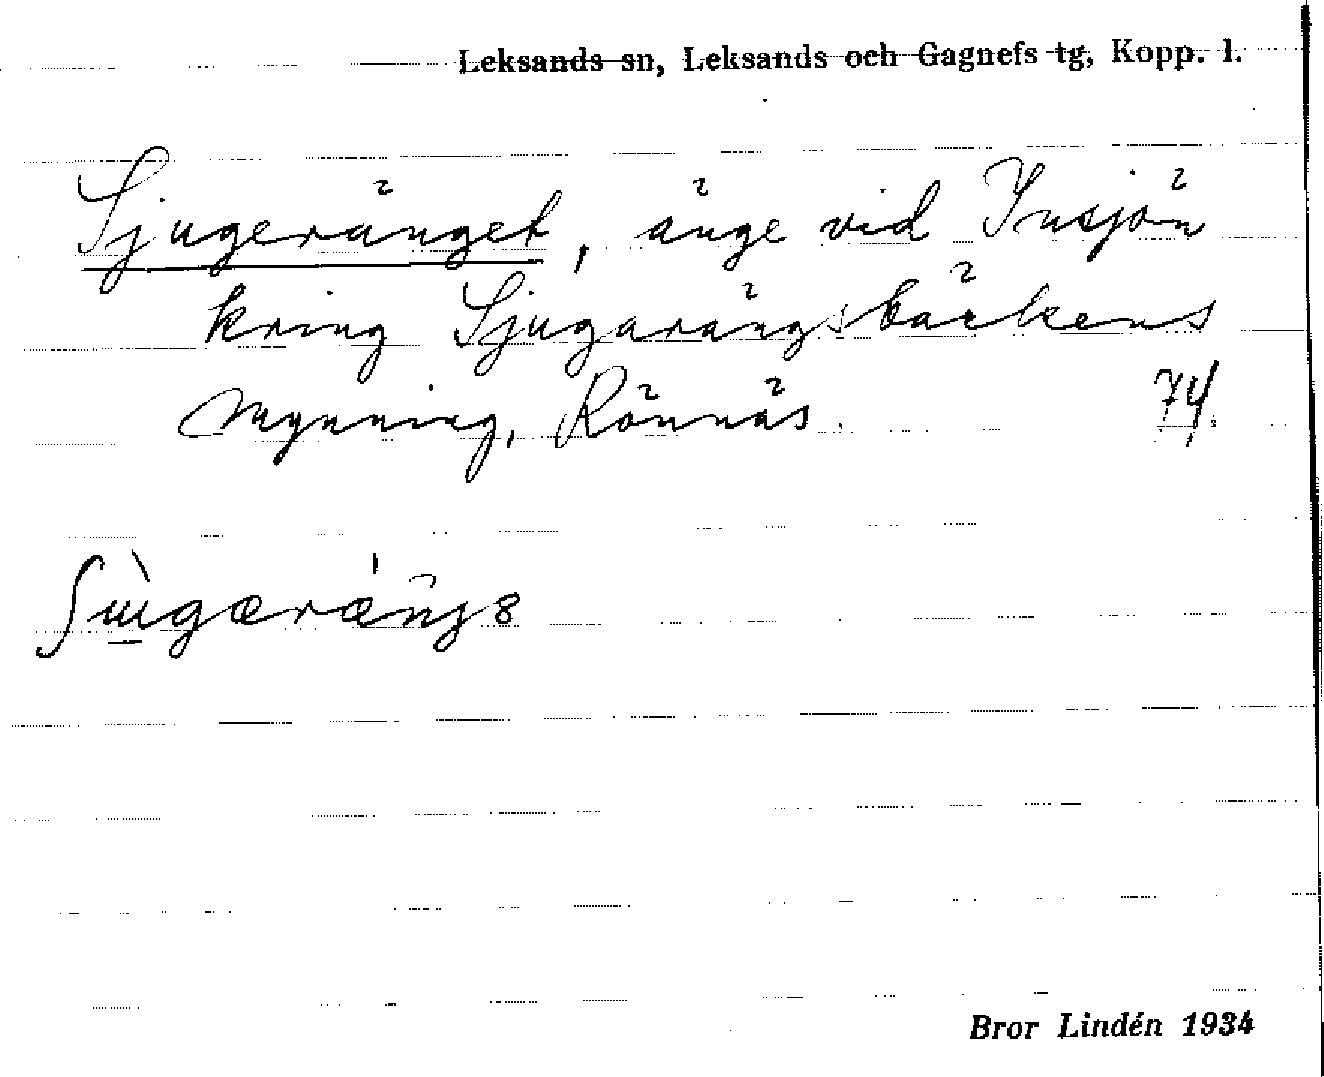 Leksands sn, Leksands och Gagnefs tg, Kopp. l.
Sjugeränget, änge vid Insjön
kring Sjugarängsbäckens
mynning, Rönnäs. 74.
Bror Lindén 1934